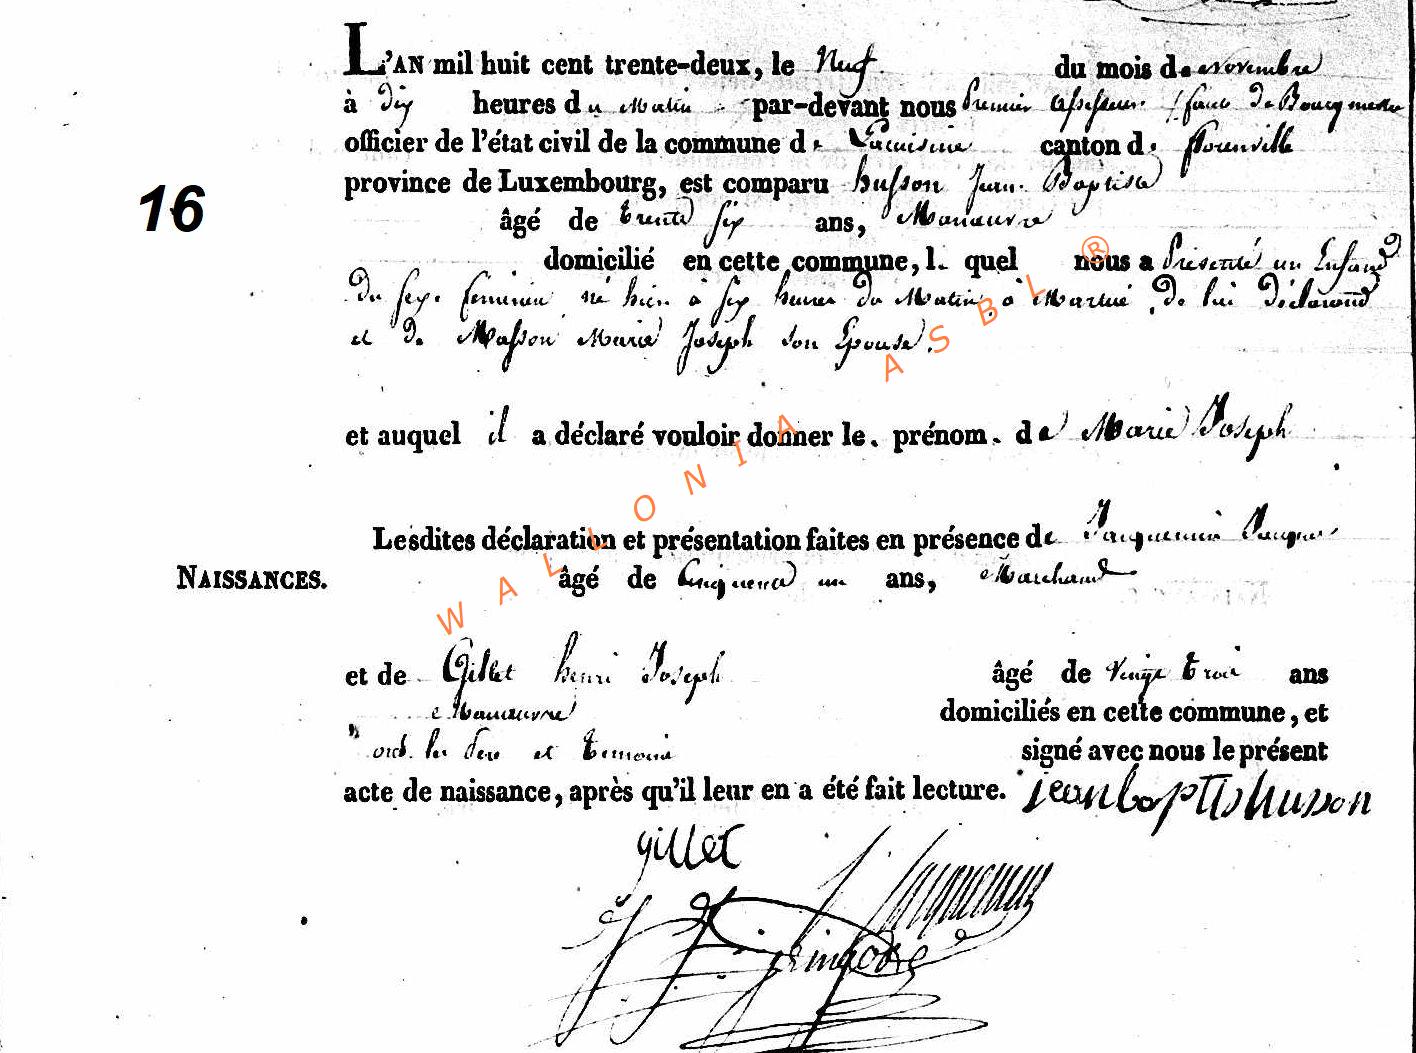 L'AN mil huit cent trente-deux, le Neuf du mois de Novembre
à dix heures du Matin par-devant nous Premier assesseur faute de Bourgmestre
officier de l'état civil de la commune de Lacuisine canton de florenville
province de Luxembourg, est comparu husson Jean Baptiste
16
âgé de trente six ans, Manœuvre
domicilié en cette commune, lequel nous a Présenté un Enfant
du sexe feminin né hier à six heures du Matin à Martué de lui déclarant
et de Masson Marie Joseph son Epouse.
et auquel il a déclaré vouloir donner le prénom de Marie Joseph
Lesdites déclaration et présentation faites en présence de Jacquemin
NAISSANCES. âgé de Cinquante un ans, Marchand
et de Gillet henri Joseph âgé de Vingt trois ans
Manœuvre domiciliés en cette commune, et
ont les Pere et temoins signé avec nous le présent
acte de naissance, après qu'il leur en a été fait lecture. jean baptis husson
gillet
J Jacquemin
WALLONIA ASBL ®